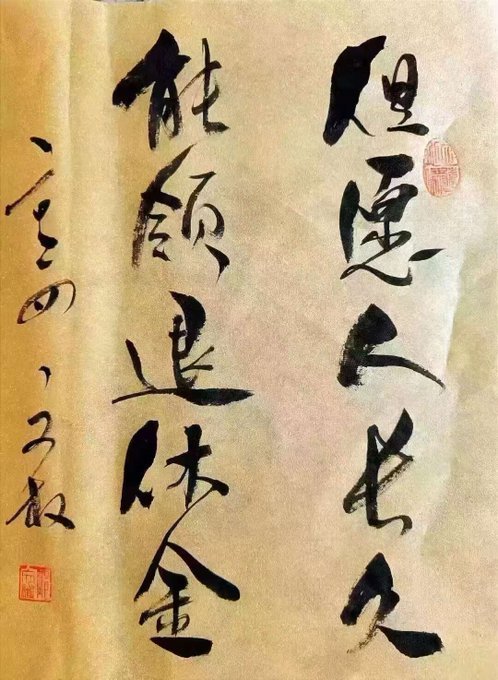 但愿人长久
能领退休金